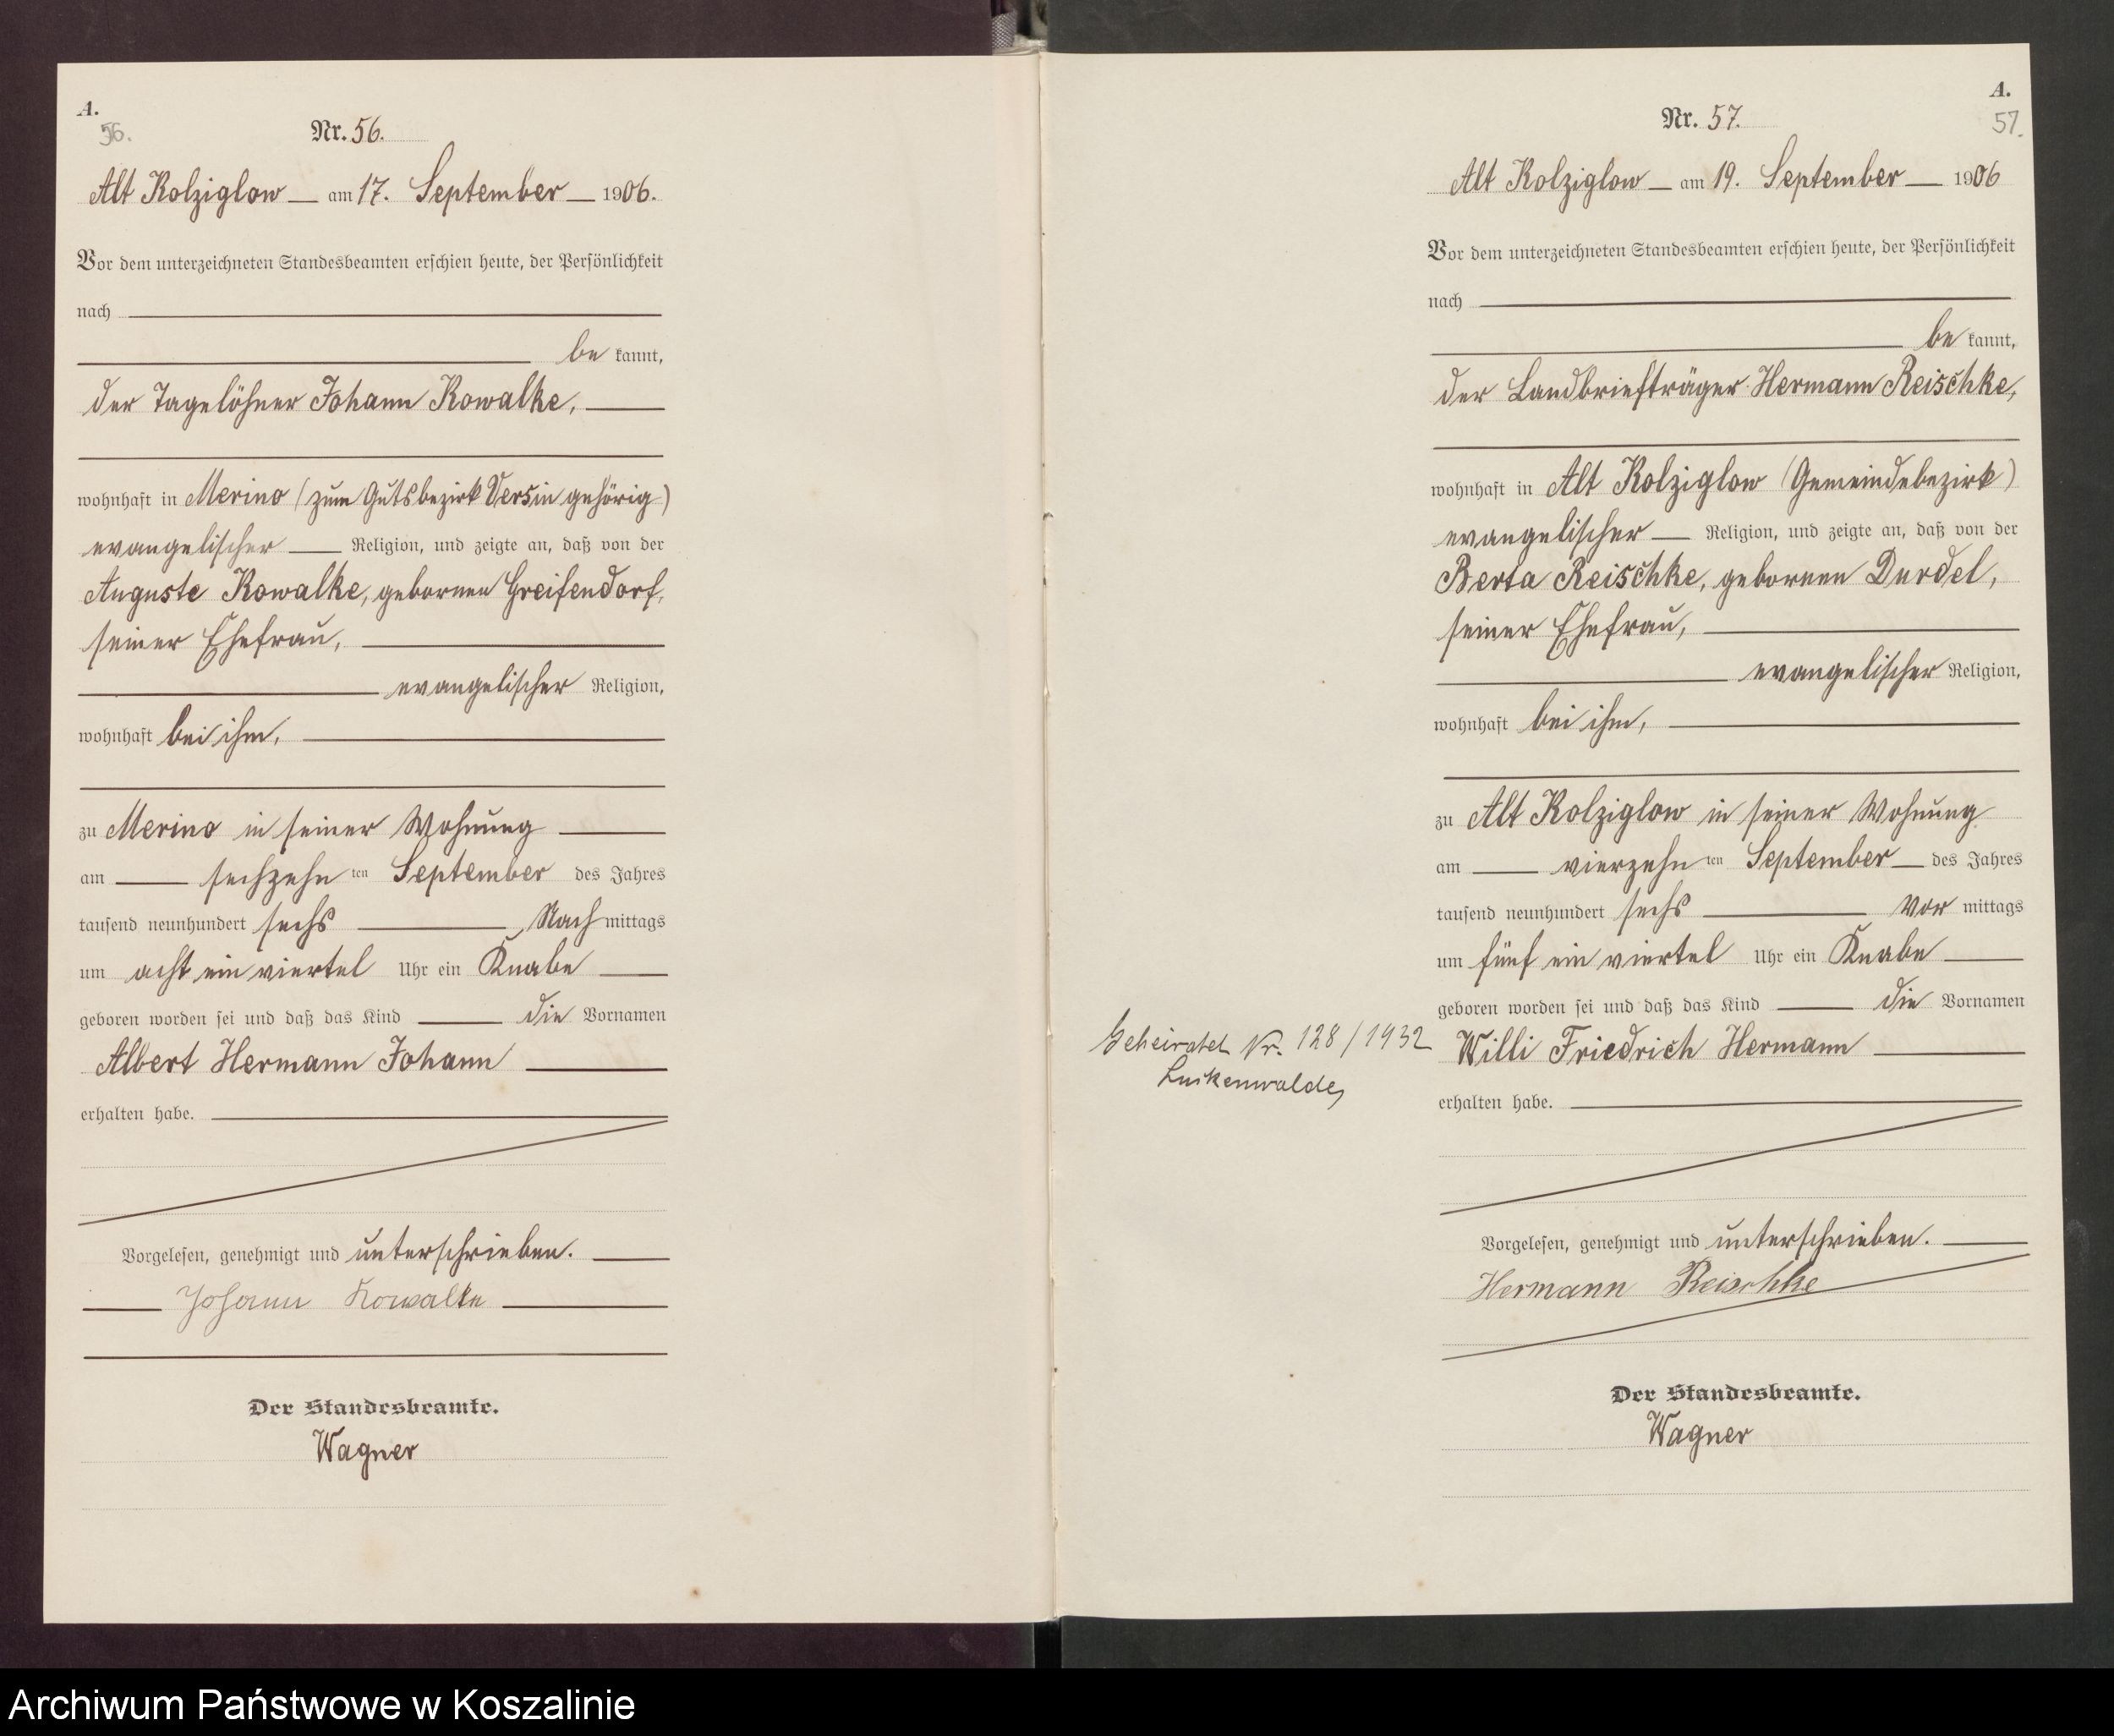 A.
56.
Nr. 56.
Alt Kolziglow am 17. September 1906.
Vor dem unterzeichneten Standesbeamten erschien heute, der Persönlichkeit
nach
be kannt,
der Tagelöhner Johann Kowalke,
wohnhaft in Merino (zum Gutsbezirk Versin gehörig)
evangelischer Religion, und zeigte an, daß von der
Auguste Kowalke, gebornen Greifendorf,
seiner Ehefrau,
evangelischer Religion,
wohnhaft bei ihm,
zu Merino in seiner Wohnung
am sechzehn ten September des Jahres
tausend neunhundert sechs Nach mittags
um acht ein viertel Uhr ein Knabe
geboren worden sei und daß das Kind die Vornamen
Albert Hermann Johann
erhalten habe.
Vorgelesen, genehmigt und unterschrieben.
Johann Kowalke
Der Standesbeamte.
Wagner
A.
57.
Nr. 57.
Alt Kolziglow am 19. September 1906
Vor dem unterzeichneten Standesbeamten erschien heute, der Persönlichkeit
nach
be kannt,
der Landbriefträger Hermann Reischke,
wohnhaft in Alt Kolziglow (Gemeindebezirk)
evangelischer Religion, und zeigte an, daß von der
Berta Reischke, gebornen Durdel,
seiner Ehefrau,
evangelischer Religion,
wohnhaft bei ihm,
zu Alt Kolziglow in seiner Wohnung
am vierzehn ten September des Jahres
tausend neunhundert sechs Vor mittags
um fünf ein viertel Uhr ein Knabe
geboren worden sei und daß das Kind die Vornamen
Geheiratet Nr. 128/1932
Luckenwalde,
Willi Friedrich Hermann
erhalten habe.
Vorgelesen, genehmigt und unterschrieben.
Hermann Reischke
Der Standesbeamte.
Wagner
Archiwum Państwowe w Koszalinie